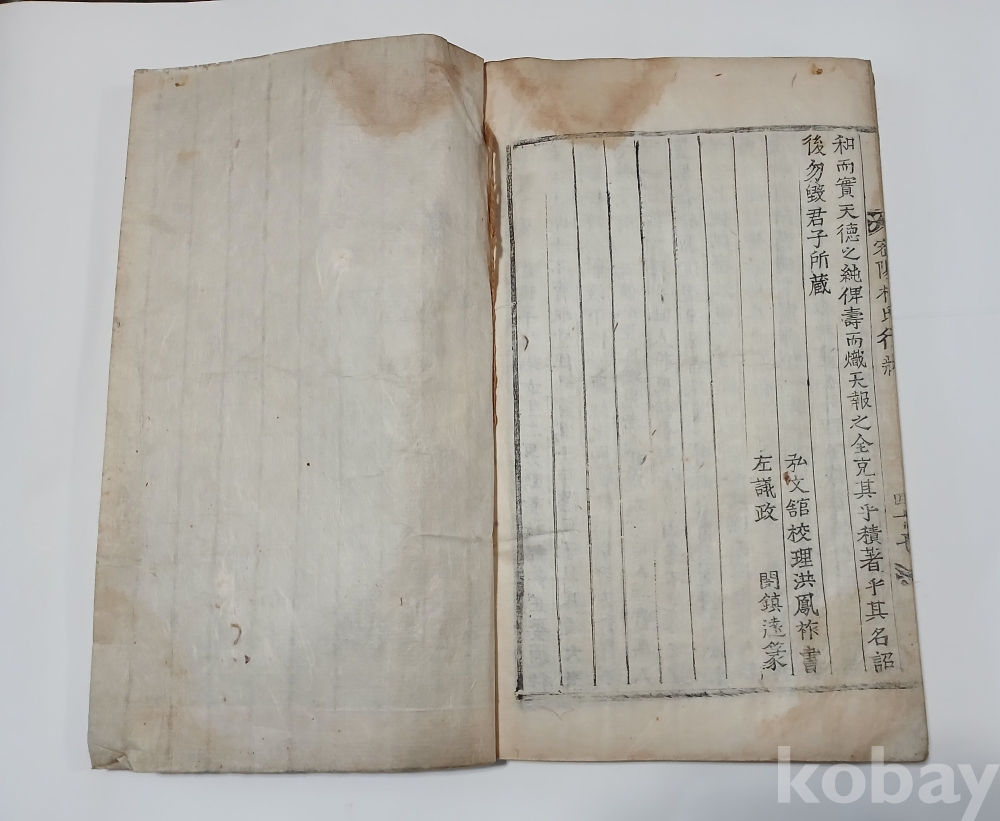 密陽朴氏行狀
四十七
和而實天德之純俾壽而熾天報之全克其乎積著乎其名詔
後勿毀君子所藏
弘文舘校理洪鳳祚書
左議政 閔鎮遠篆
kobay